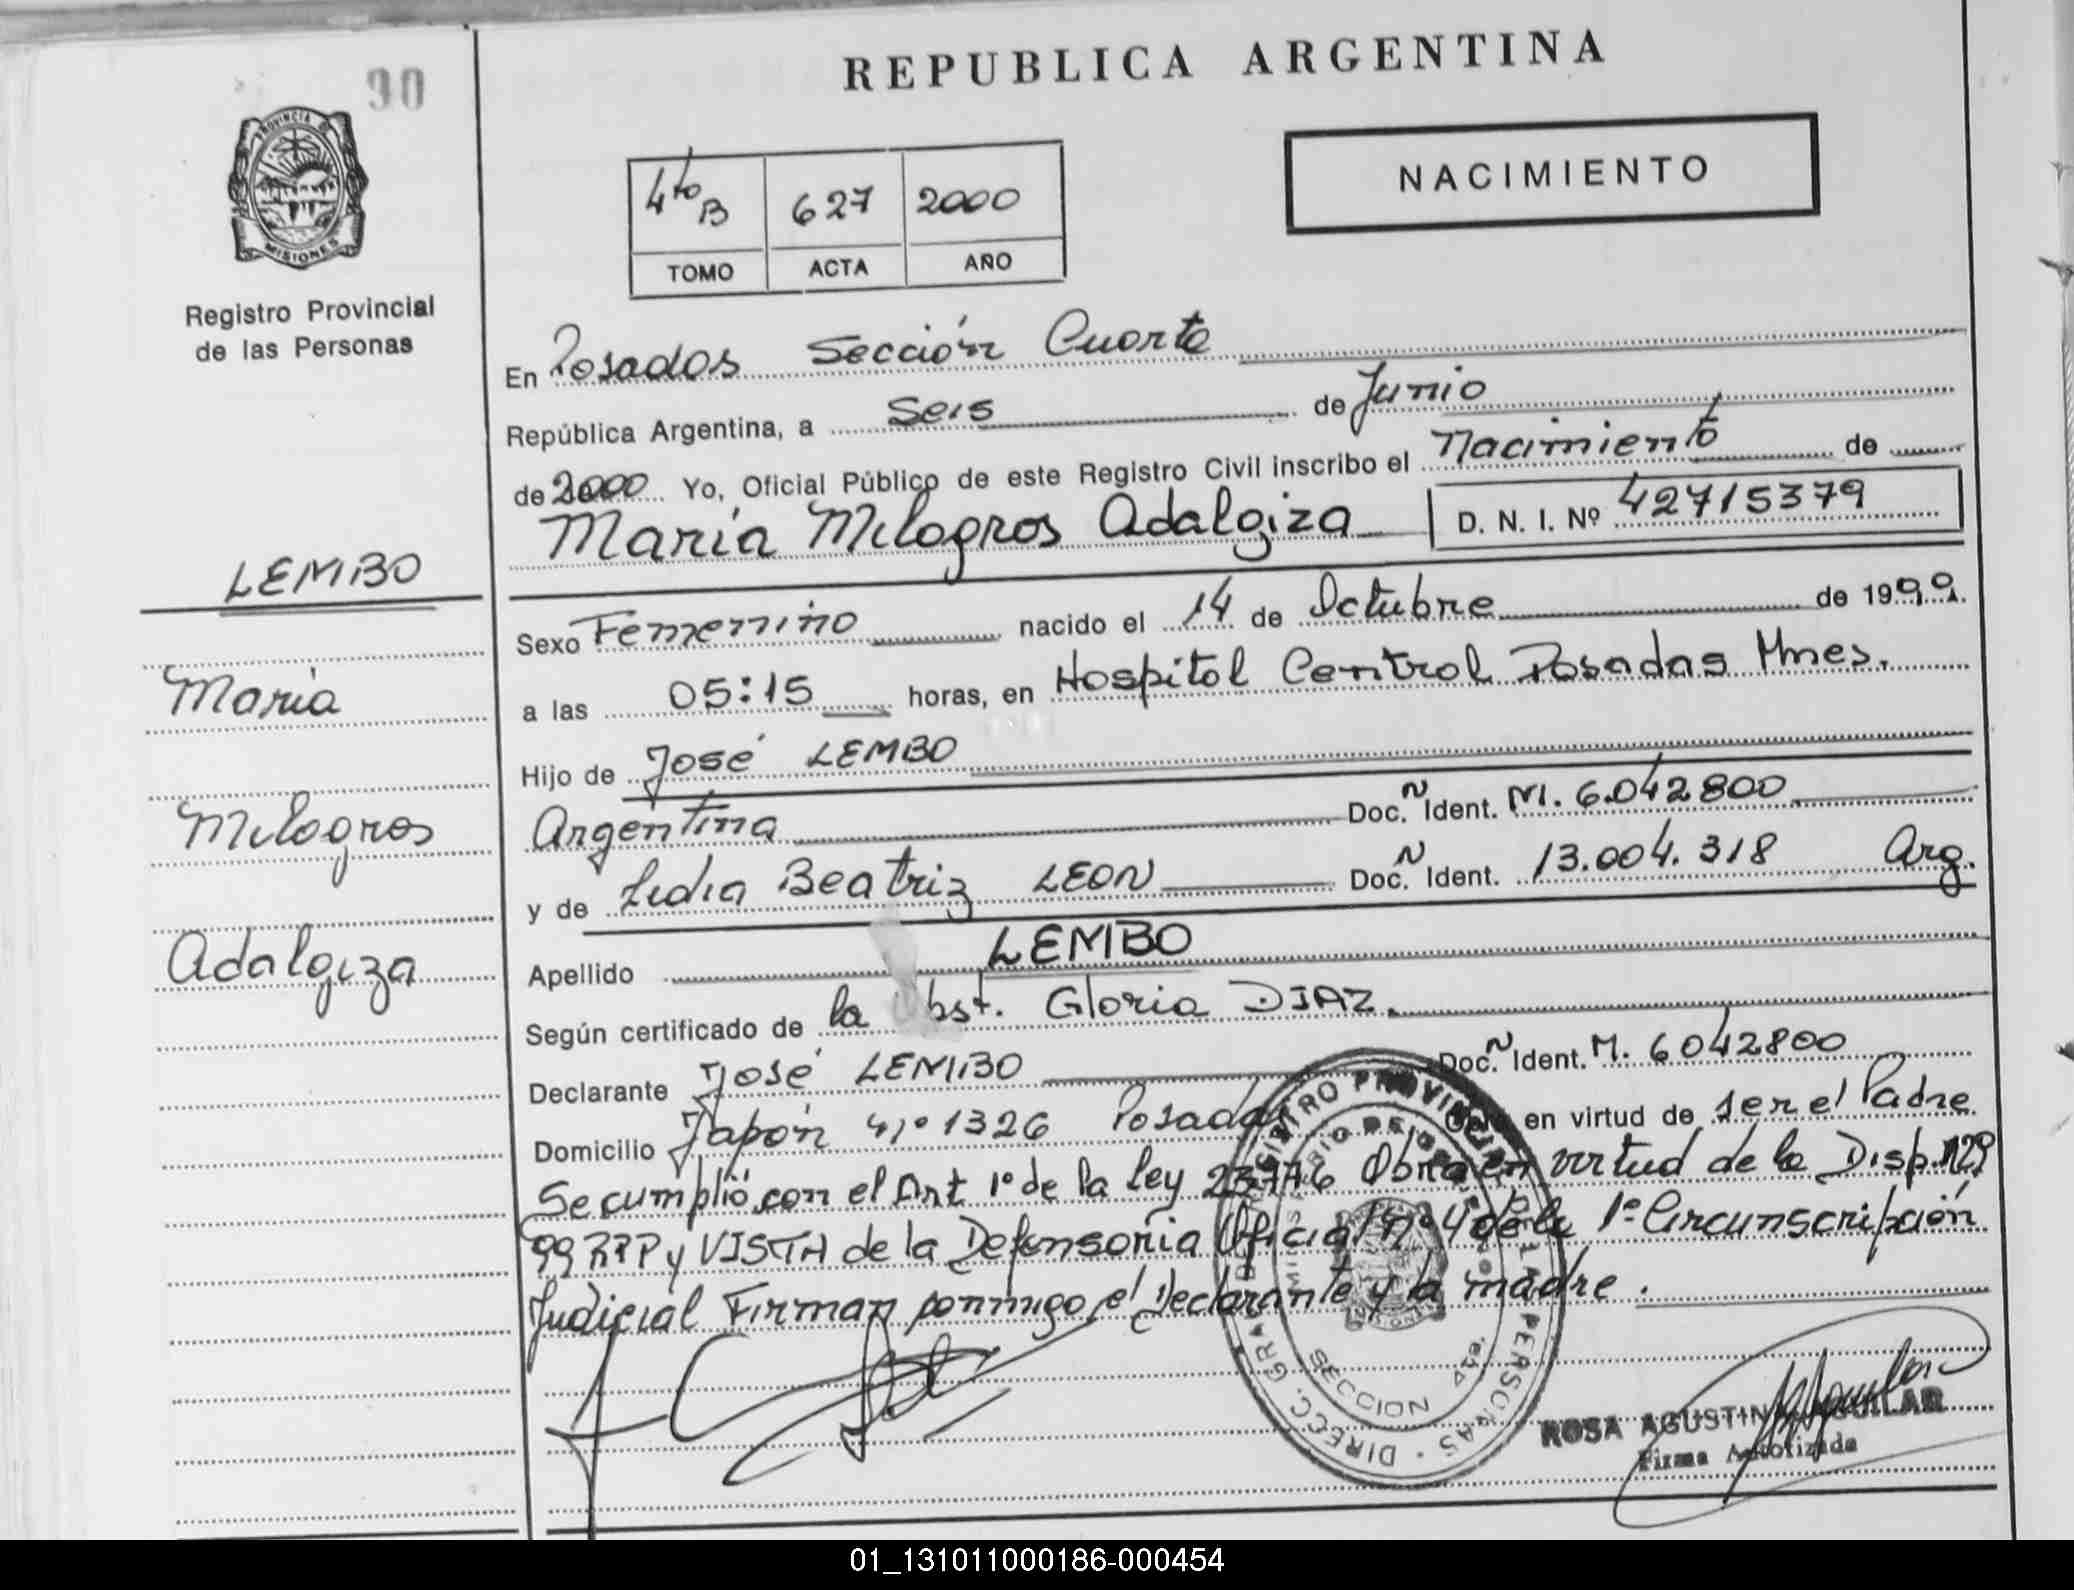 REPUBLICA ARGENTINA
90
NACIMIENTO
PROVINCIA DE
MISIONES
4to B 627 2000
TOMO ACTA AÑO
Registro Provincial
de las Personas
En Posadas Sección Cuarta
República Argentina, a Seis de Junio
de 2000 Yo, Oficial Público de este Registro Civil inscribo el Nacimiento de
María Milagros Adalgiza D. N. I. Nº 42715379
LEMBO
Sexo Femenino nacido el 14 de Octubre de 1999.
María
a las 05:15 horas, en Hospital Central Posadas Mnes.
Hijo de José LEMBO
Milagros
Argentina Doc. Ñ Ident. M. 6.042800
y de Lidia Beatriz LEON Doc. Ñ Ident. 13.004.318 Arg.
Adalgiza
Apellido LEMBO
Según certificado de la Obst. Gloria DIAZ.
Declarante José LEMBO Doc. Ñ Ident. M. 6042800
Domicilio Japón Nº 1326 Posadas en virtud de ser el Padre
Se cumplió con el Art 1º de la Ley 23776 Obra en virtud de la Disp. 129
99 RPP y VISTA de la Defensoria Oficial Nº 4 de la 1º Circunscripción
Judicial Firman conmigo el Declarante y la madre.
DIRECC. GRAL. REGISTRO PROVINCIAL DE LAS PERSONAS
SECCION 4ta.
MISIONES
ROSA AGUSTINA AGUILAR
Firma Autorizada
01_131011000186-000454